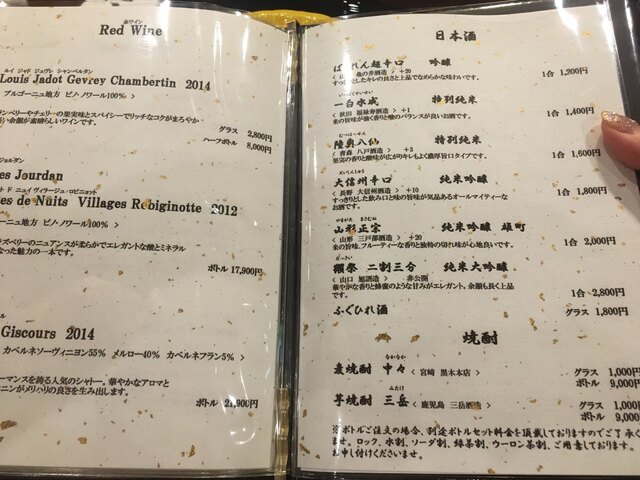 赤ワイン
Red Wine
ルイ ジャド ジュヴレ シャンベルタン
Louis Jadot Gevrey Chambertin 2014
ブルゴーニュ地方 ピノ・ノワール100% >
ンベリーやチェリーの果実味とスパイシーでリッチなコクがまろやか
長い余韻が素晴らしいワインです。
グラス 2,800円
ハーフボトル 8,000円
ジョルダン
es Jourdan
ト ド ニュイ ヴィラージュ・ロビニョット
es de Nuits Villages Robignotte 2012
ーニュ地方 ピノ・ノワール100% >
ラズベリーのニュアンスが柔らかでエレガントな酸とミネラル
なった魅力の一本です。
ボトル 17,900円
ル
Giscours 2014
カベルネソーヴィニヨン55% メルロー40% カベルネフラン5% >
ーマンスを誇る人気のシャトー。華やかなアロマと
ニンがメリハリの良さを生み出します。
ボトル 21,900円
日本酒
ばくれん超辛口 吟醸
< 山形 亀の井酒造 > +20
すっきりとしたキレの良さと上品でなめらかな味わいです。
1合 1,200円
いっぱくすいせい
一白水成 特別純米
< 秋田 福禄寿酒造 > +1
米の旨味が強く香りと酸のバランスが良いお酒です。
1合 1,400円
むつはっせん
陸奥八仙 特別純米
< 青森 八戸酒造 > +3
果実の香りと酸味が広がりキレもよく濃厚旨口タイプです。
1合 1,600円
だいしんしゅう
大信州辛口 純米吟醸
< 長野 大信州酒造 > +10
すっきりした飲み口と味の旨味が気品あるオールマイティーな
お酒です。
1合 1,800円
やまがた まさむね
山形正宗 純米吟醸 雄町
< 山形 水戸部酒造 > +20
米の旨味、フルーティーな香りと独特の切れ味が心地良いです。
1合 2,000円
だっさい
獺祭 二割三分 純米大吟醸
< 山口 旭酒造 > 非公開
華やかな香りと蜂蜜のような甘みがエレガント。余韻も長く上品
です。
1合 2,800円
ふぐひれ酒 グラス 1,800円
焼酎
なかなか
麦焼酎 中々 < 宮崎 黒木本店 > グラス 1,000円
ボトル 9,000円
みたけ
芋焼酎 三岳 < 鹿児島 三岳酒造 > グラス 1,000円
ボトル 9,000円
※ボトルご注文の場合、別途ボトルセット料金を頂戴しておりますのでご了承く
ませ。ロック、水割、ソーダ割、緑茶割、ウーロン茶割、ご用意しております。
お申し付けくださいませ。